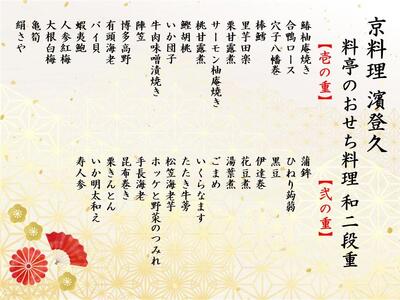 京料理 濱登久
料亭のおせち料理 和二段重
【壱の重】
鰆柚庵焼き
合鴨ロース
穴子八幡巻
棒鱈
里芋田楽
栗甘露煮
サーモン柚庵焼き
桃甘露煮
鰹胡桃
いか団子
牛肉味噌漬焼き
陣笠
博多高野
有頭海老
バイ貝
蝦夷鮑
人参紅梅
大根白梅
亀筍
絹さや
【弐の重】
蒲鉾
ひねり蒟蒻
黒豆
伊達巻
花豆煮
湯葉煮
ごまめ
いくらなます
たたき牛蒡
松笠海老芋
ホッケと野菜のつみれ
手長海老
昆布巻き
栗きんとん
いか明太和え
寿人参